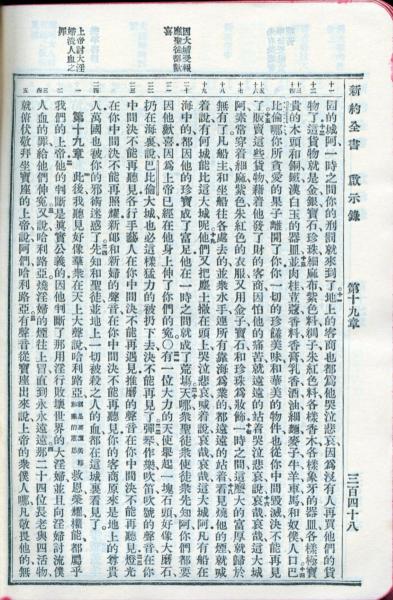 新約全書 啟示錄 第十九章 三百四十八
固的城阿一時之間你的刑罰就來到了地上的客商也都爲他哭泣悲哀因爲沒有人再買他們的貨
物了這貨物就是金銀寶石珍珠細麻布紫色料綢子朱紅色料各樣香木各樣象牙的器皿各樣極寶
貴的木頭和銅鐵漢白玉的器皿並肉桂荳蔻香料香膏乳香酒油細麵麥子牛羊車馬和奴僕人口巴
比倫哪你所貪愛的果子離開了你你一切的珍饈美味和華美的物件也從你中間毀滅決不能再見
了販賣這些貨物藉着他發了財的客商因怕他的痛苦就遠遠的站着哭泣悲哀說哀哉哀哉這大城
阿素常穿着細麻紫色朱紅色的衣服又用金子寶石和珍珠爲妝飾一時之間這麼大的富厚就歸於
無有了凡船主和坐船往各處去的並衆水手連所有靠海爲業的都遠遠的站着看見燒他的煙就喊
着說有何城能比這大城呢他們又把塵土撒在頭上哭泣悲哀喊着說哀哉哀哉這大城阿凡有船在
海中的都因他的珍寶成了富足他在一時之間就成了荒塲天哪衆聖徒衆使徒衆先知阿你們都要
因大城受報應聖徒都歡喜
因他歡喜因爲上帝已經在他身上伸了你們的冤○有一位大力的天使舉起一塊石頭好像大磨石
扔在海裏說巴比倫大城也必這樣猛力的被扔下去決不能再見了彈琴作樂吹笛吹號的聲音在你
中間決不能再聽見各行手藝人在你中間決不能再遇見推磨的聲音在你中間決不能再聽見燈光
在你中間決不能再照耀新郎和新婦的聲音在你中間決不能再聽見你的客商原來是地上的尊貴
人萬國也被你的邪術迷惑了先知和聖徒並地上一切被殺之人的血都在這城裏看見了
上帝討大淫婦流人血之罪
第十九章 此後我聽見好像羣衆在天上大聲說哈利路亞救恩榮耀權能都屬乎
我們的上帝他的判斷是眞實公義的因他判斷了那用淫行敗壞世界的大淫婦並且向淫婦討流僕
人血的罪給他們伸冤又說哈利路亞燒淫婦的煙往上冒直到永永遠遠那二十四位長老與四活物
就俯伏敬拜坐寶座的上帝說阿們哈利路亞有聲音從寶座出來說上帝的衆僕人哪凡敬畏他的無